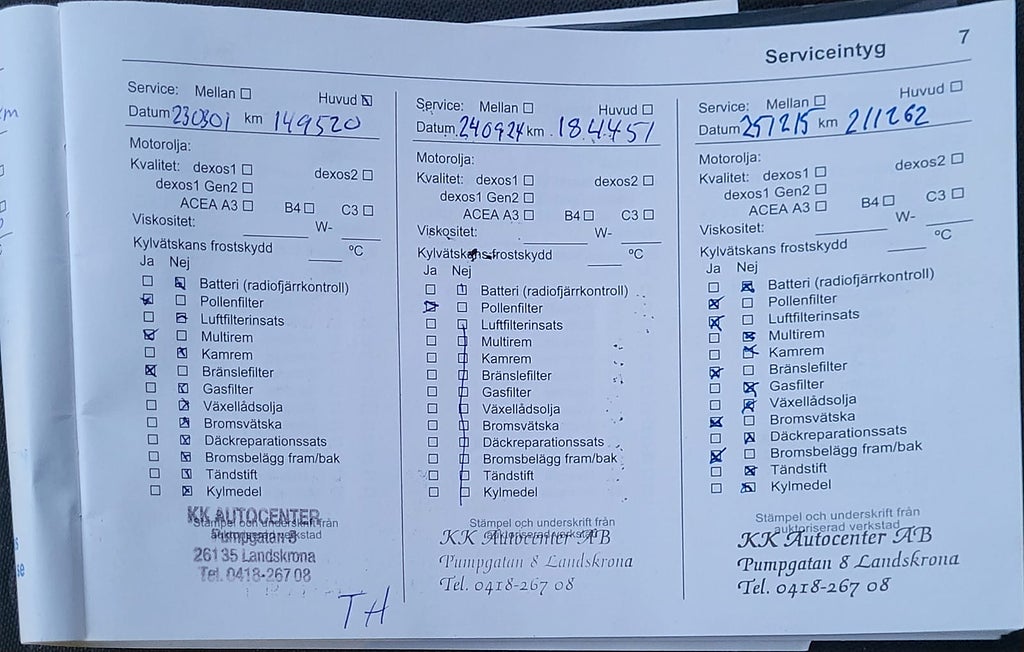 7
Serviceintyg
Service: Mellan ☐ Huvud ☒
Datum 230801 km 149520
Motorolja:
Kvalitet: dexos1 ☐ dexos2 ☐
dexos1 Gen2 ☐
ACEA A3 ☐ B4 ☐ C3 ☐
Viskositet: ______ W- ____
Kylvätskans frostskydd ____ ºC
Ja Nej
☐ ☒ Batteri (radiofjärrkontroll)
☒ ☐ Pollenfilter
☐ ☒ Luftfilterinsats
☒ ☐ Multirem
☐ ☒ Kamrem
☒ ☐ Bränslefilter
☐ ☒ Gasfilter
☐ ☒ Växellådsolja
☐ ☒ Bromsvätska
☐ ☒ Däckreparationssats
☐ ☒ Bromsbelägg fram/bak
☐ ☒ Tändstift
☐ ☒ Kylmedel
Stämpel och underskrift från
auktoriserad verkstad
KK AUTOCENTER
Pumpgatan 8
261 35 Landskrona
Tel. 0418-267 08
TH
Service: Mellan ☐ Huvud ☐
Datum 240924 km 184451
Motorolja:
Kvalitet: dexos1 ☐ dexos2 ☐
dexos1 Gen2 ☐
ACEA A3 ☐ B4 ☐ C3 ☐
Viskositet: ______ W- ____
Kylvätskans frostskydd ____ ºC
Ja Nej
☐ ☐ Batteri (radiofjärrkontroll)
☒ ☐ Pollenfilter
☐ ☐ Luftfilterinsats
☐ ☐ Multirem
☐ ☐ Kamrem
☐ ☐ Bränslefilter
☐ ☐ Gasfilter
☐ ☐ Växellådsolja
☐ ☐ Bromsvätska
☐ ☐ Däckreparationssats
☐ ☐ Bromsbelägg fram/bak
☐ ☐ Tändstift
☐ ☐ Kylmedel
Stämpel och underskrift från
auktoriserad verkstad
KK Autocenter AB
Pumpgatan 8 Landskrona
Tel. 0418-267 08
Service: Mellan ☐ Huvud ☐
Datum 251215 km 211262
Motorolja:
Kvalitet: dexos1 ☐ dexos2 ☐
dexos1 Gen2 ☐
ACEA A3 ☐ B4 ☐ C3 ☐
Viskositet: ______ W- ____
Kylvätskans frostskydd ____ ºC
Ja Nej
☐ ☒ Batteri (radiofjärrkontroll)
☒ ☐ Pollenfilter
☒ ☐ Luftfilterinsats
☐ ☒ Multirem
☐ ☒ Kamrem
☒ ☐ Bränslefilter
☐ ☒ Gasfilter
☐ ☒ Växellådsolja
☒ ☐ Bromsvätska
☐ ☒ Däckreparationssats
☒ ☐ Bromsbelägg fram/bak
☐ ☒ Tändstift
☐ ☒ Kylmedel
Stämpel och underskrift från
auktoriserad verkstad
KK Autocenter AB
Pumpgatan 8 Landskrona
Tel. 0418-267 08